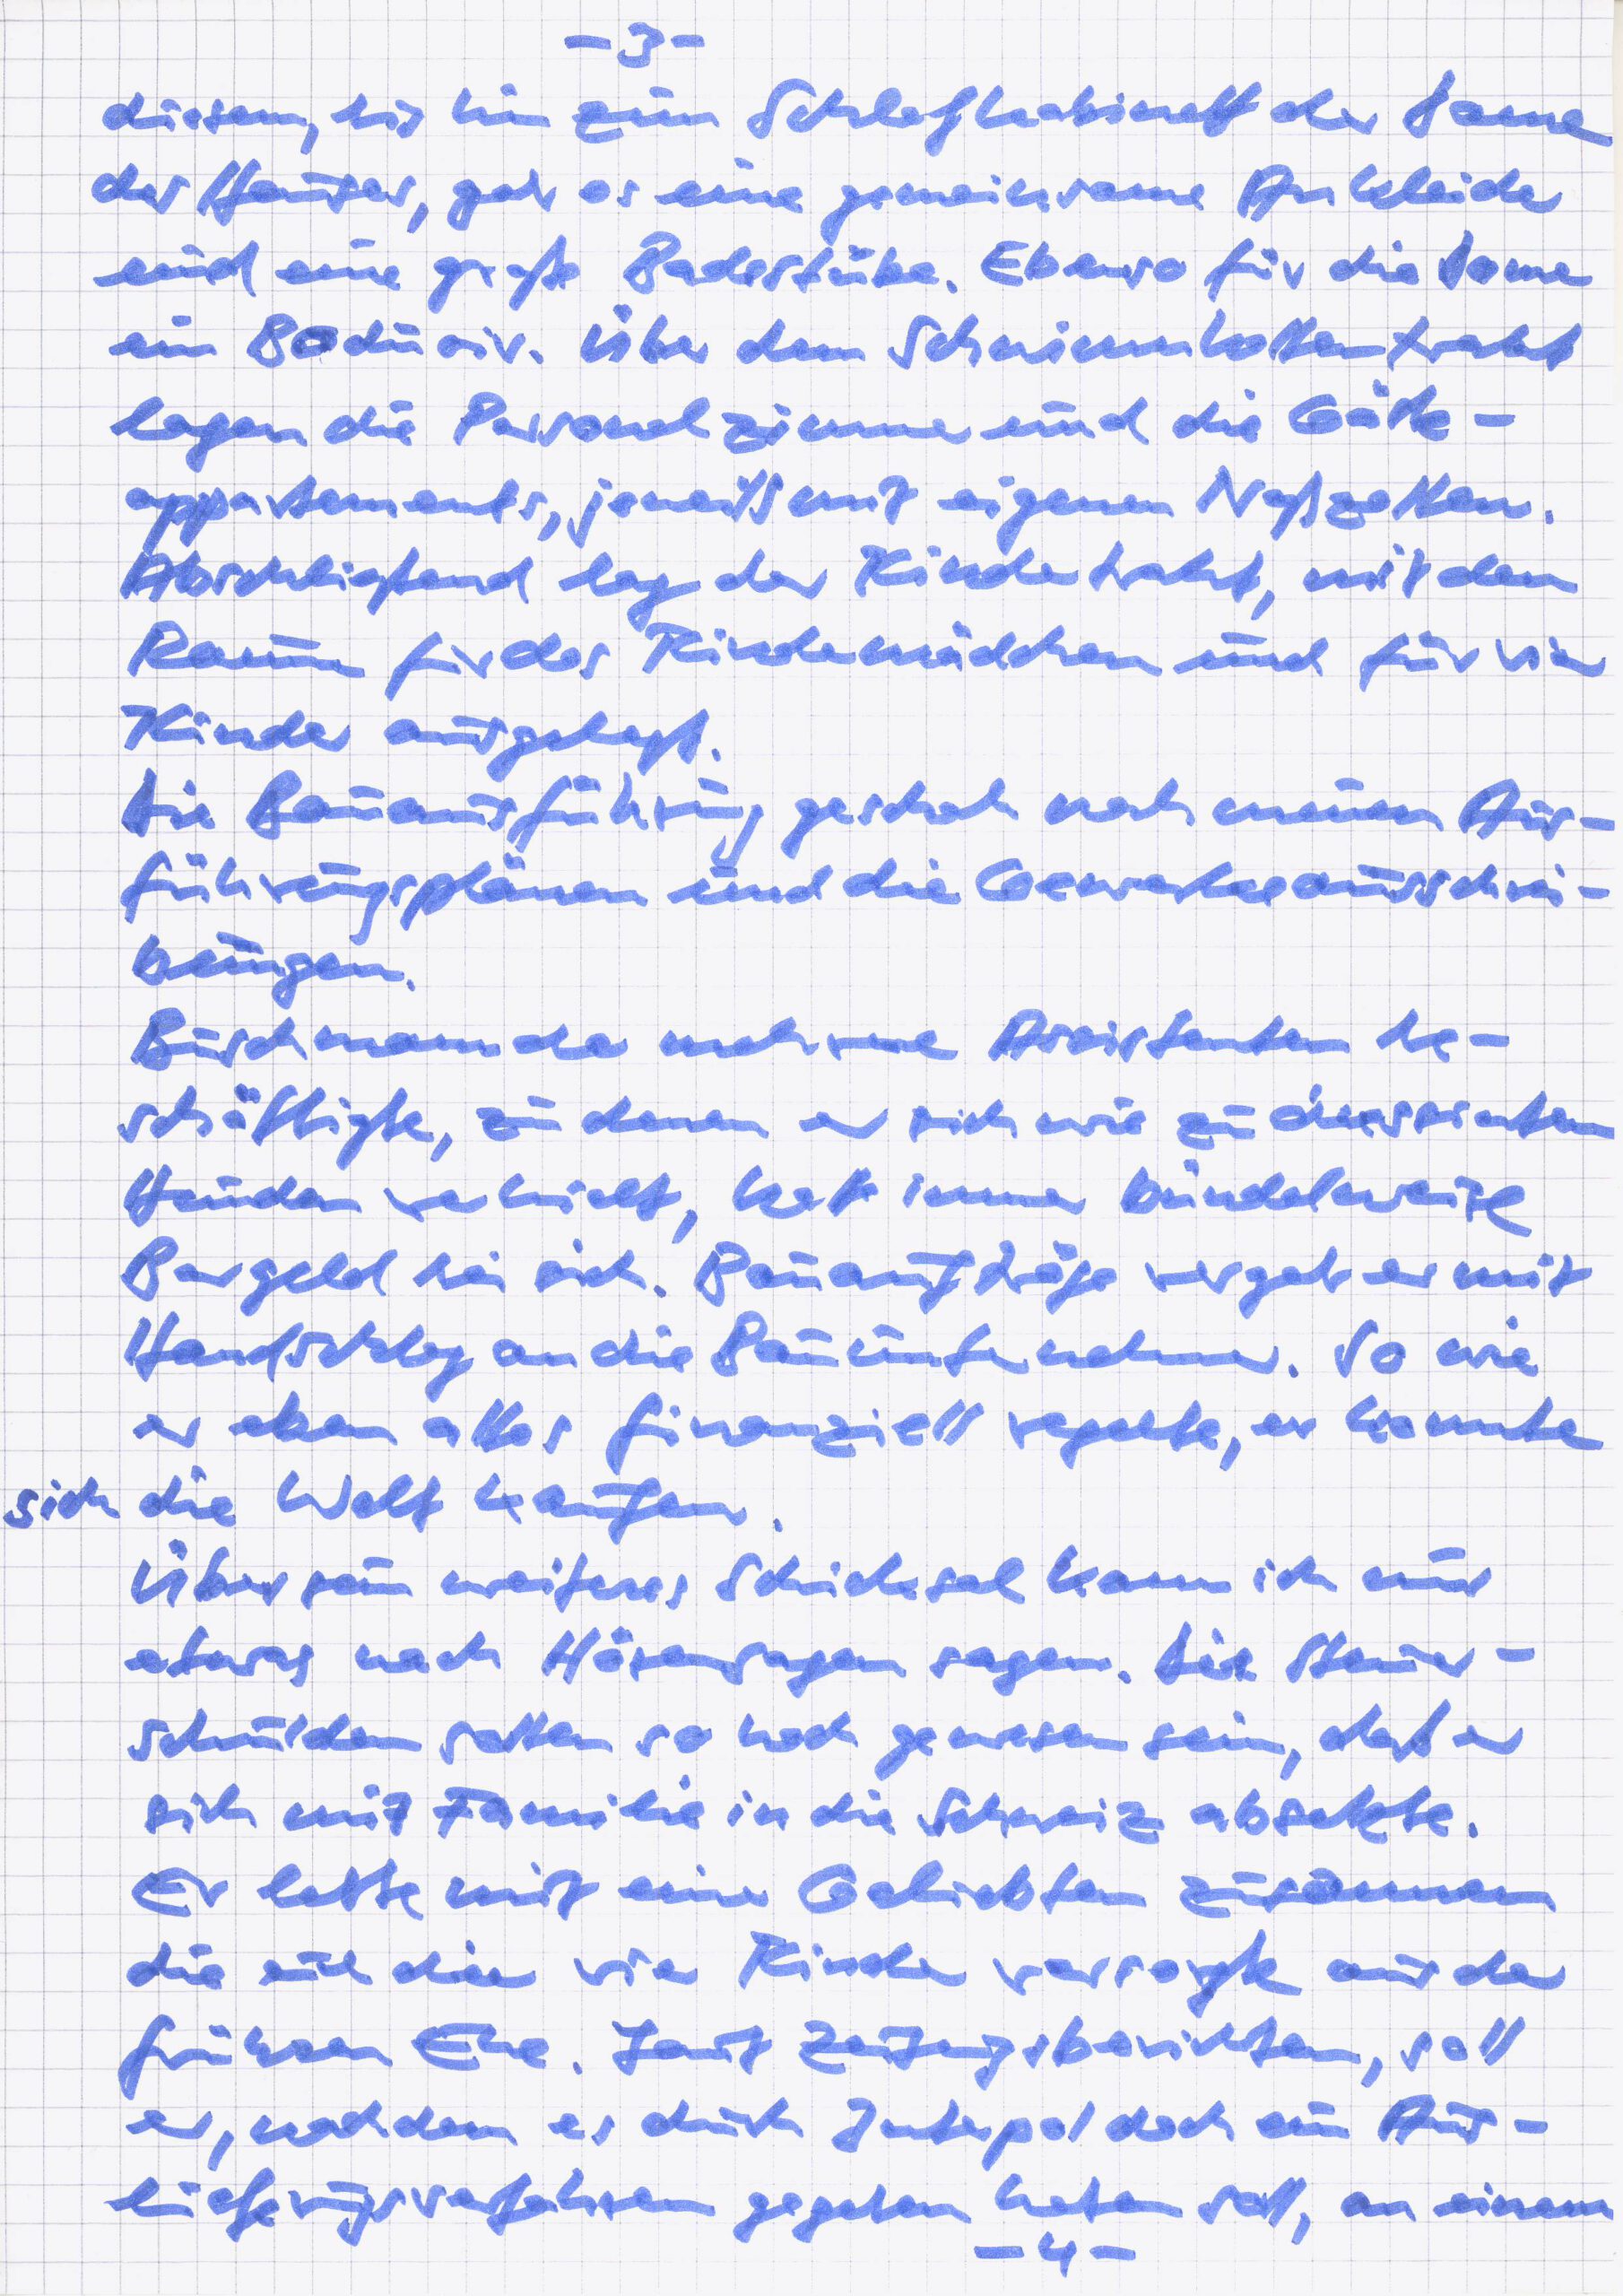 -3-
diesem, bis hin zum Schlafkabinett der Dame
des Hauses, gab es eine gemeinsame Ankleide
und eine große Badestube. Ebenso für die Dame
ein Boduoir. Über dem Schwimmhallentrakt
lagen die Personalzimmer und die Gäste-
appartements, jeweils mit eigenen Naßzellen.
Abschließend lag der Kindertrakt, mit dem
Raum für das Kindermädchen und für vier
Kinder ausgelegt.
Die Bauausführung geschah nach meinen Aus-
führungsplänen und die Gewerkeausschrei-
bungen.
Buschmann der mehrere Assistenten be-
schäftigte, zu denen er sich wie zu dressierten
Hunden verhielt, hatte immer bündelweise
Bargeld bei sich. Bauaufträge vergab er mit
Handschlag an die Bauunternehmer. So wie
er eben alles finanziell regelte, er konnte
sich die Welt kaufen.
Über sein weiteres Schicksal kann ich nur
etwas nach Hörensagen sagen. Die Steuer-
schulden sollen so hoch gewesen sein, daß er
sich mit Familie in die Schweiz absetzte.
Er lebte mit einer Geliebten zusammen
die die vier Kinder versorgte aus der
frühren Ehe. Laut Zeitungsberichten, soll
er, nachdem es durch Interpol doch ein Aus-
lieferungsverfahren gegeben haben soll, an einem
-4-